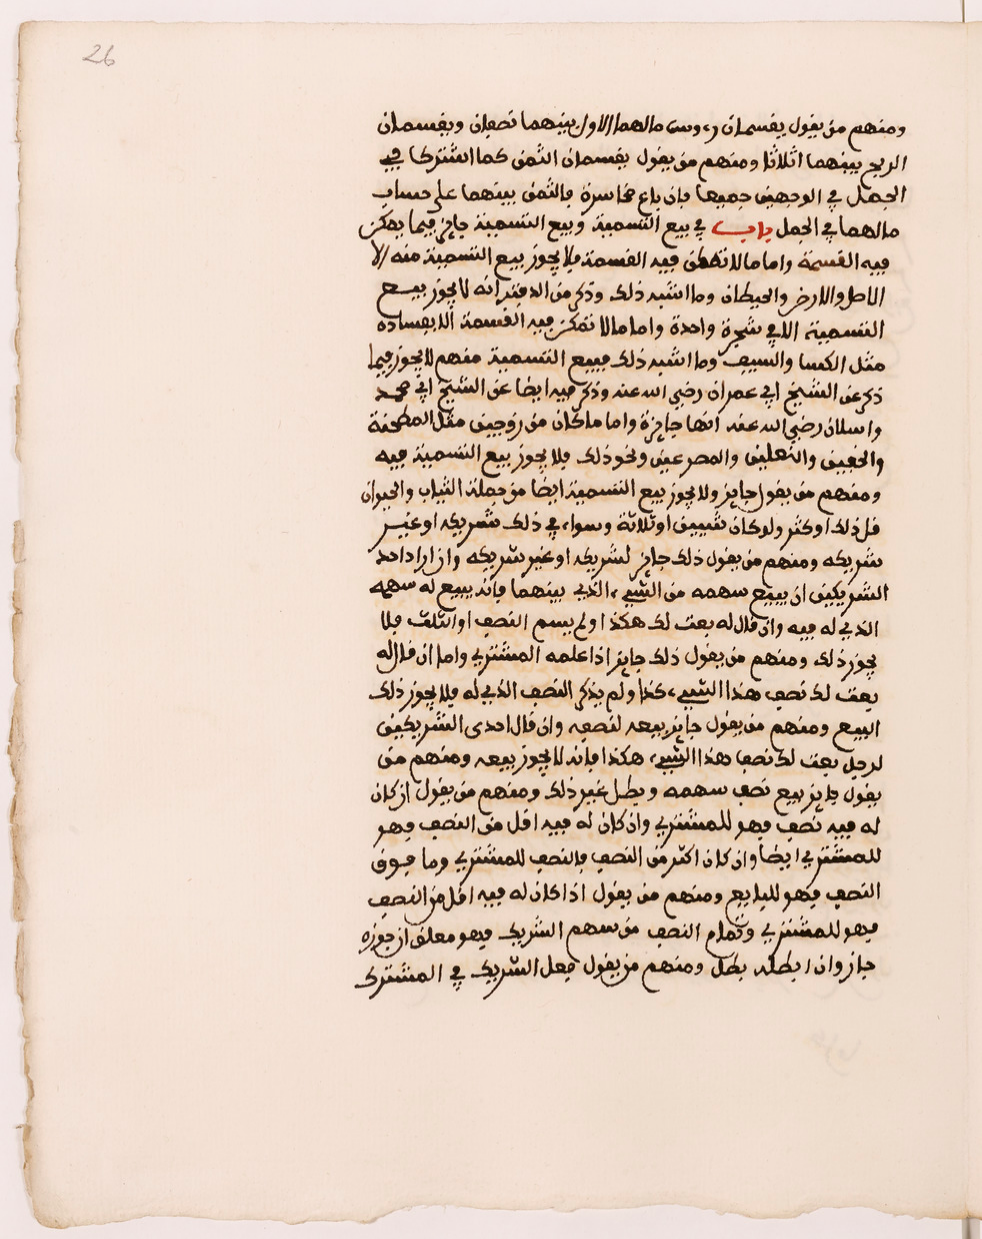 26
ومنهم من يقول يقسمان رءوس مالهما الاول بينهما نصفان ويقسمان
الربح بينهما اثلاثا ومنهم من يقول يقسمان الثمن كما اشتركا في
الجمل في الوجهين جميعا فان باع مخاسرة فالثمن بينهما على حساب
مالهما في الجمل باب في بيع التسمية وبيع التسمية جايز فيما يمكن
فيه القسمة واما ما لا تمكن فيه القسمة فلا يجوز بيع التسمية منه الا
الاصل والارض والحيطان وما اشبه ذلك وذكر من الدفتر انه لا يجوز بيع
التسمية الا في شجرة واحدة واما ما لا تمكن فيه القسمة الا بفساده
مثل الكسا والسيف وما اشبه ذلك فبيع التسمية منهم لا يجوز فيما
ذكر عن الشيخ ابي عمران رضي الله عنه وذكر فيه ايضا عن الشيخ ابي محمد
واسلان رضي الله عنه انها جايزة واما ما كان من زوجين مثل المطحنة
والخفين والنعلين والمصرعين ونحو ذلك فلا يجوز بيع التسمية فيه
ومنهم من يقول جايز ولا يجوز بيع التسمية ايضا من جملة الثياب والحيوان
قل ذلك او كثر ولو كان شيين او ثلاثة وسواء في ذلك شريكه او غير
شريكه ومنهم من يقول ذلك جايز لشريكه او غير شريكه وان اراد احد
الشريكين ان يبيع سهمه من الشيء الذي بينهما فانه يبيع له سهمه
الذي له فيه وان قال له بعت لك هكذا ولم يسم النصف او الثلث فلا
يجوز ذلك ومنهم من يقول ذلك جايز اذا علمه المشتري واما ان قال له
بعت لك نصف هذا الشيء كذا ولم يذكر النصف الذي له فلا يجوز ذلك
البيع ومنهم من يقول جايز بيعه لنصفه وان قال احدى الشريكين
لرجل بعت لك نصف هذا الشيء هكذا فانه لا يجوز بيعه ومنهم من
يقول جايز بيع نصف سهمه وبطل غير ذلك ومنهم من يقول ان كان
له فيه نصف فهو للمشتري وان كان له فيه اقل من النصف فهو
للمشتري ايضا وان كان اكثر من النصف فالنصف للمشتري وما فوق
النصف فهو للبايع ومنهم من يقول اذا كان له فيه اقل من النصف
فهو للمشتري وتمام النصف من سهم الشريك فهو معلق ان جوزه
جاز وان ابطله بطل ومنهم من يقول فعل الشريك في المشترك